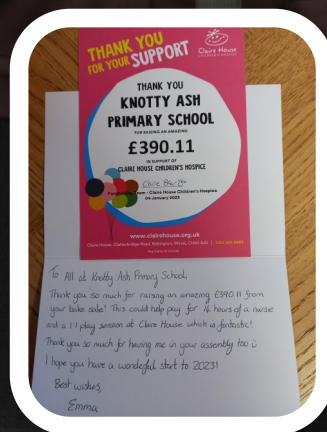 THANK YOU
FOR YOUR SUPPORT
Claire House
CHILDREN'S HOSPICE
THANK YOU
KNOTTY ASH
PRIMARY SCHOOL
FOR RAISING AN AMAZING
£390.11
IN SUPPORT OF
CLAIRE HOUSE CHILDREN'S HOSPICE
Team - Claire House Children's Hospice
04 January 2023
www.clairehouse.org.uk
Claire House, Clatterbridge Road, Bebington, Wirral, CH63 4JD
To All at Knotty Ash Primary School,
Thank you so much for raising an amazing £390.11 from
your bake sale! This could help pay for hours of a nurse
and a 1:1 play session at Claire House which is fantastic!
Thank you so much for having me in your assembly too
I hope you have a wonderful start to 2023!
Best wishes,
Emma